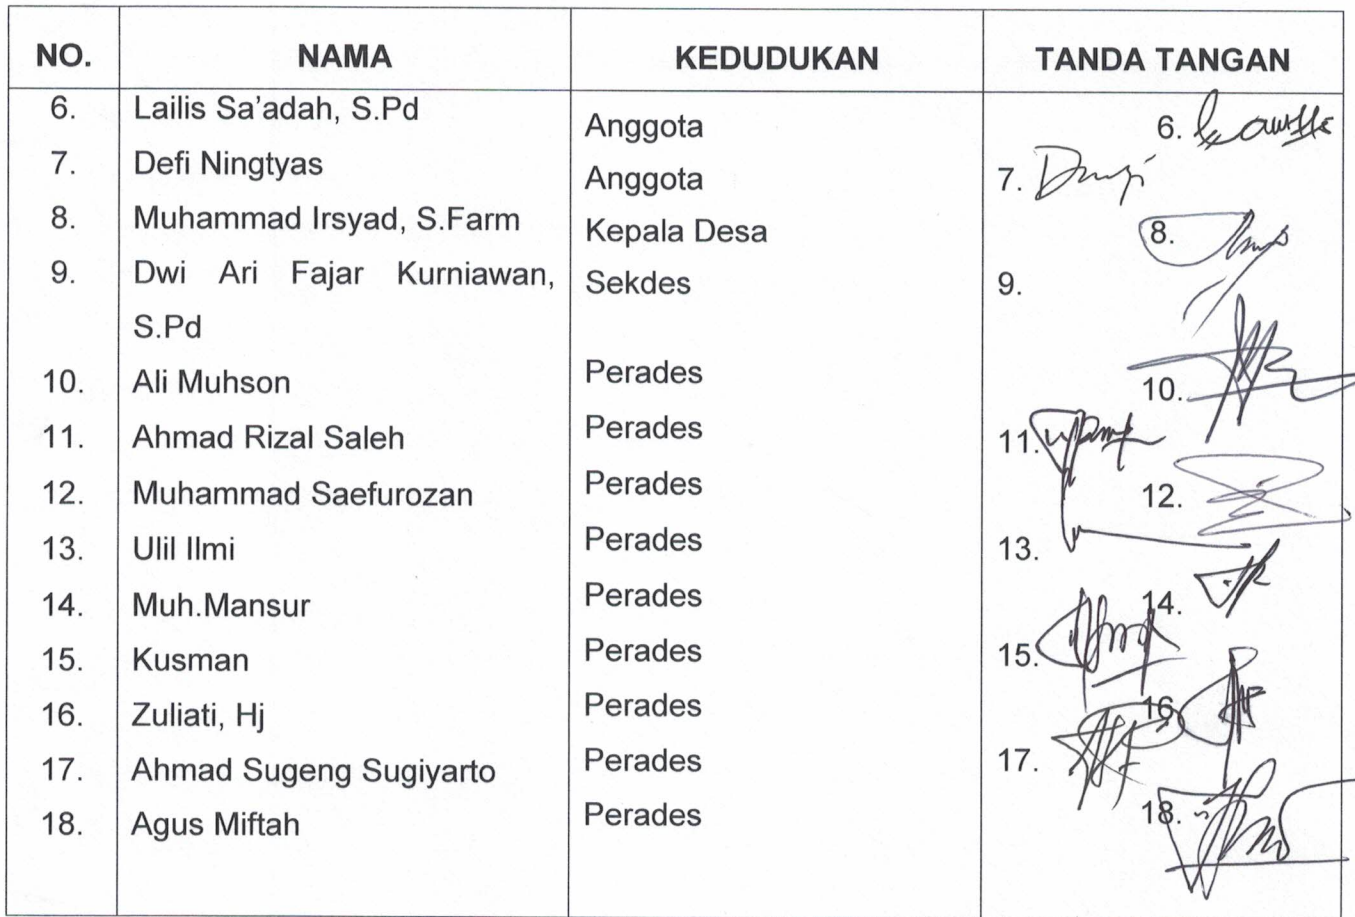 NO. NAMA KEDUDUKAN TANDA TANGAN
6. Lailis Sa'adah, S.Pd Anggota 6.
7. Defi Ningtyas Anggota 7.
8. Muhammad Irsyad, S.Farm Kepala Desa 8.
9. Dwi Ari Fajar Kurniawan, Sekdes 9.
S.Pd
10. Ali Muhson Perades 10.
11. Ahmad Rizal Saleh Perades 11.
12. Muhammad Saefurozan Perades 12.
13. Ulil Ilmi Perades 13.
14. Muh.Mansur Perades 14.
15. Kusman Perades 15.
16. Zuliati, Hj Perades 16.
17. Ahmad Sugeng Sugiyarto Perades 17.
18. Agus Miftah Perades 18.